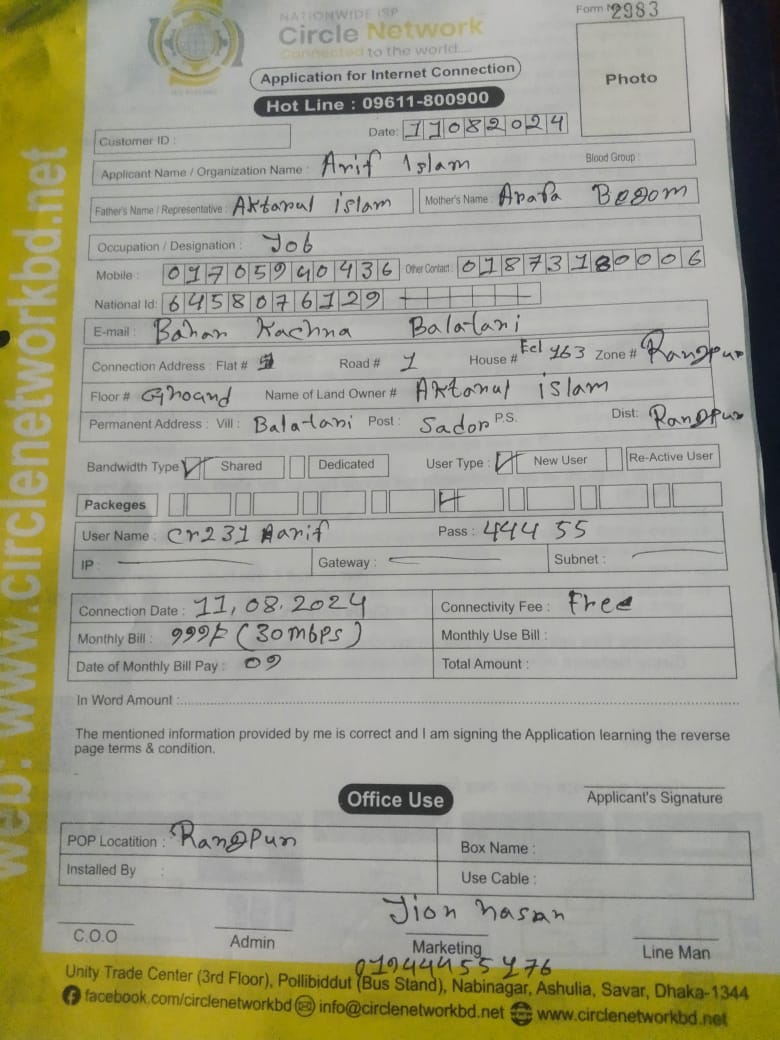 Form No 2983
NATIONWIDE ISP
Circle Network
Connected to the world....
Photo
Application for Internet Connection
Hot Line : 09611-800900
Customer ID :
Date: 11082024
Applicant Name / Organization Name : Arif Islam
Blood Group :
Father's Name / Representative : Aktarul islam
Mother's Name : Arafa Begom
Occupation / Designation : Job
Mobile : 01705940436 Other Contact : 01873180006
National Id: 6458076129
E-mail : Bahar Kachna Balatari
Connection Address : Flat # Road # 1 House # Ecl 163 Zone # Rangpur
Floor # Ghoand Name of Land Owner # Aktarul islam
Permanent Address : Vill : Balatari Post : Sador P.S. Dist: Rangpur
Bandwidth Type Shared Dedicated User Type : New User Re-Active User
Packeges
User Name : Cr231 Aarif Pass : 444 55
IP : Gateway : Subnet :
Connection Date : 11,08.2024 Connectivity Fee : Free
Monthly Bill : 999/- (30mbps) Monthly Use Bill :
Date of Monthly Bill Pay : 09 Total Amount :
In Word Amount :
The mentioned information provided by me is correct and I am signing the Application learning the reverse
page terms & condition.
Applicant's Signature
Office Use
POP Locatition : Rangpur Box Name :
Installed By : Use Cable :
Jion hasan
C.O.O Admin Marketing Line Man
Unity Trade Center (3rd Floor), Pollibiddut (Bus Stand), Nabinagar, Ashulia, Savar, Dhaka-1344
facebook.com/circlenetworkbd info@circlenetworkbd.net www.circlenetworkbd.net
web: www.circlenetworkbd.net